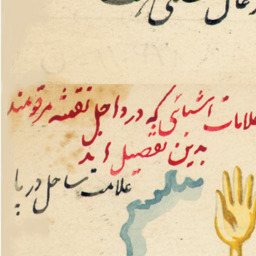 علامات اشیائی که در داخل نقشه مرقومند
بدین تفصیل اند
علامت ساحل دریا